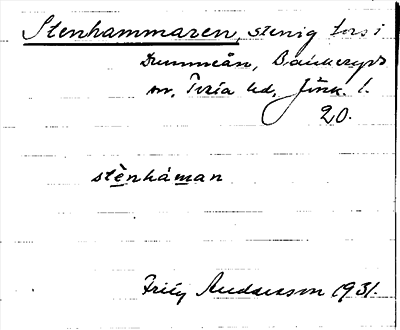 Stenhammaren, stenig fors i
Drumneån, Bäckeryds
sn, Tveta hd, Jönk. l.
20.
stènháman
Frity Andersson 1931.